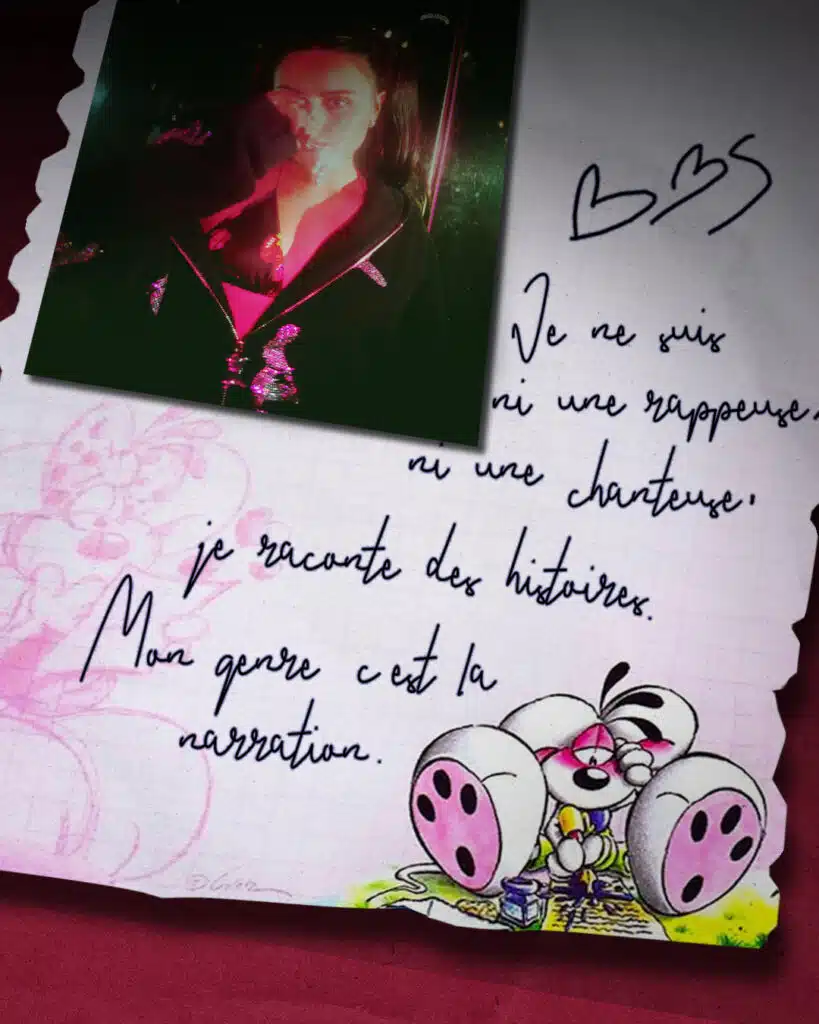 BBS
Je ne suis
ni une rappeuse,
ni une chanteuse,
je raconte des histoires.
Mon genre c'est la
narration.